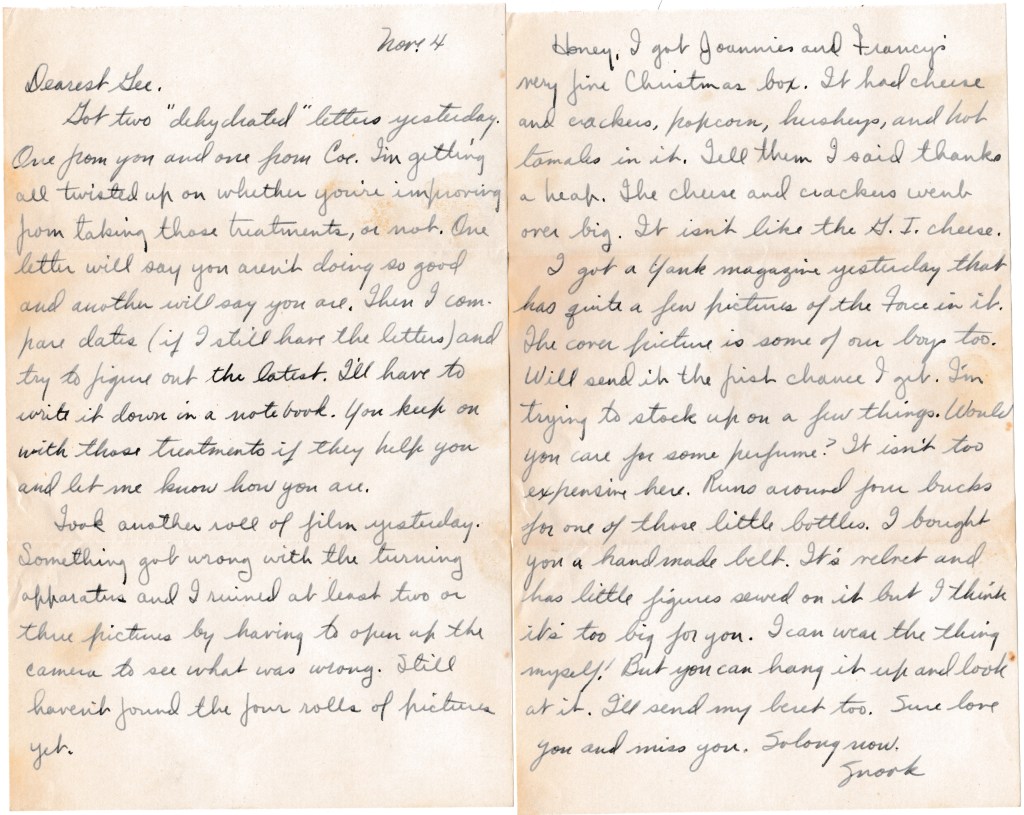 Nov. 4
Dearest Gee.
Got two "dehydrated" letters yesterday.
One from you and one from Coe. I'm getting
all twisted up on whether you're improving
from taking those treatments, or not. One
letter will say you aren't doing so good
and another will say you are. Then I com-
pare dates (if I still have the letters) and
try to figure out the latest. I'll have to
write it down in a notebook. You keep on
with those treatments if they help you
and let me know how you are.
Took another roll of film yesterday.
Something got wrong with the turning
apparatus and I ruined at least two or
three pictures by having to open up the
camera to see what was wrong. Still
haven't found the four rolls of pictures
yet.
Honey, I got Joannies and Francy's
very fine Christmas box. It had cheese
and crackers, popcorn, hersheys, and hot
tamales in it. Tell them I said thanks
a heap. The cheese and crackers went
over big. It isn't like the G. I. cheese.
I got a Yank magazine yesterday that
has quite a few pictures of the Force in it.
The cover picture is some of our boys too.
Will send it the first chance I get. I'm
trying to stock up on a few things. Would
you care for some perfume? It isn't too
expensive here. Runs around four bucks
for one of those little bottles. I bought
you a handmade belt. It's velvet and
has little figures sewed on it but I think
it's too big for you. I can wear the thing
myself! But you can hang it up and look
at it. I'll send my beret too. Sure love
you and miss you. So long now.
Snook